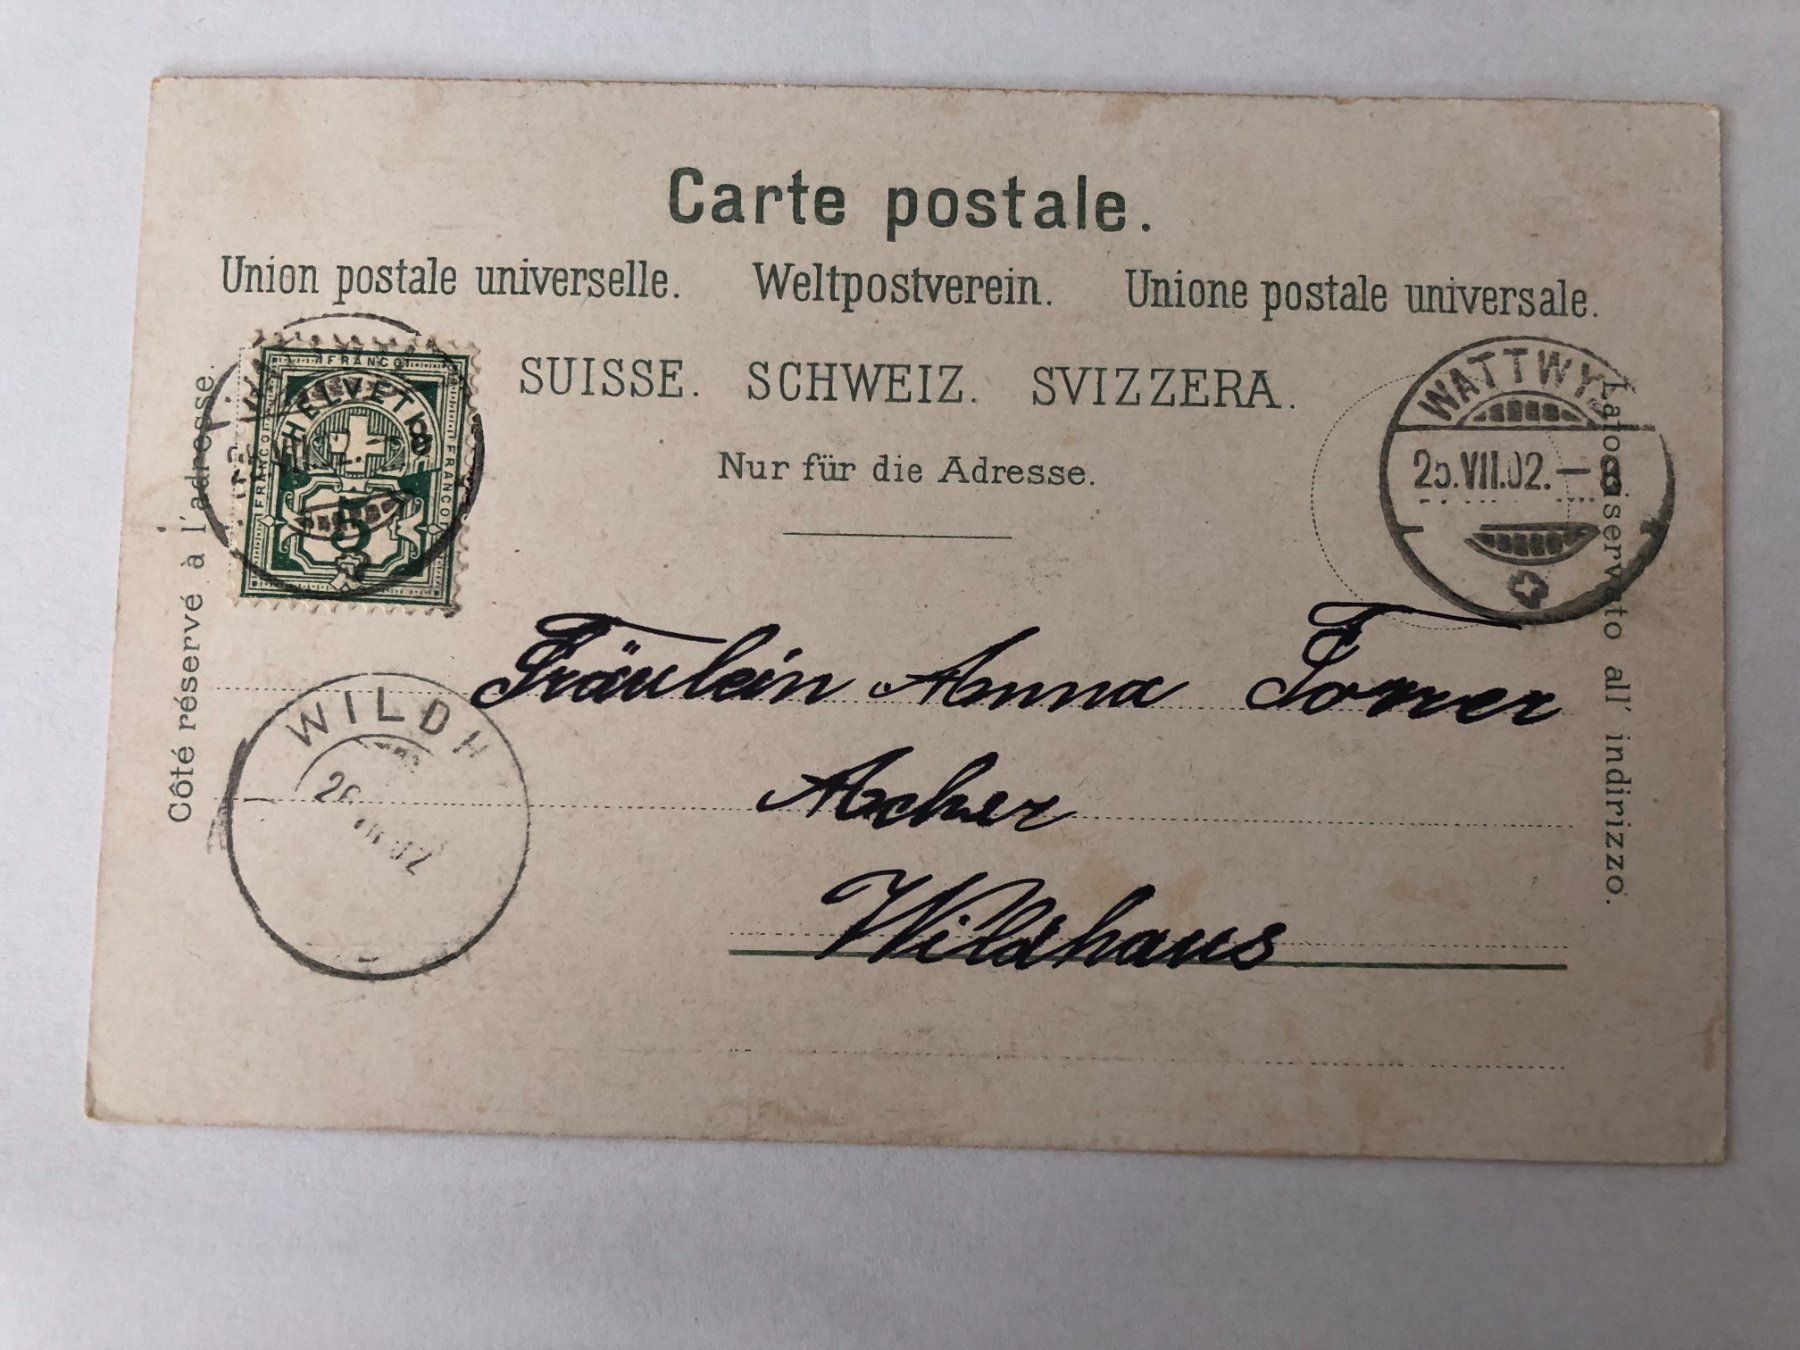 Carte postale.
Union postale universelle. Weltpostverein. Unione postale universale.
SUISSE. SCHWEIZ. SVIZZERA.
Nur für die Adresse.
Côté réservé à l'adresse.
Lato riservato all' indirizzo.
FRANCO
FRANCO
FRANCO
HELVETIA
5
WATTWYL
25.VII.02.–8
WILDH
Fräulein Anna Forrer
Acker
Wildhaus